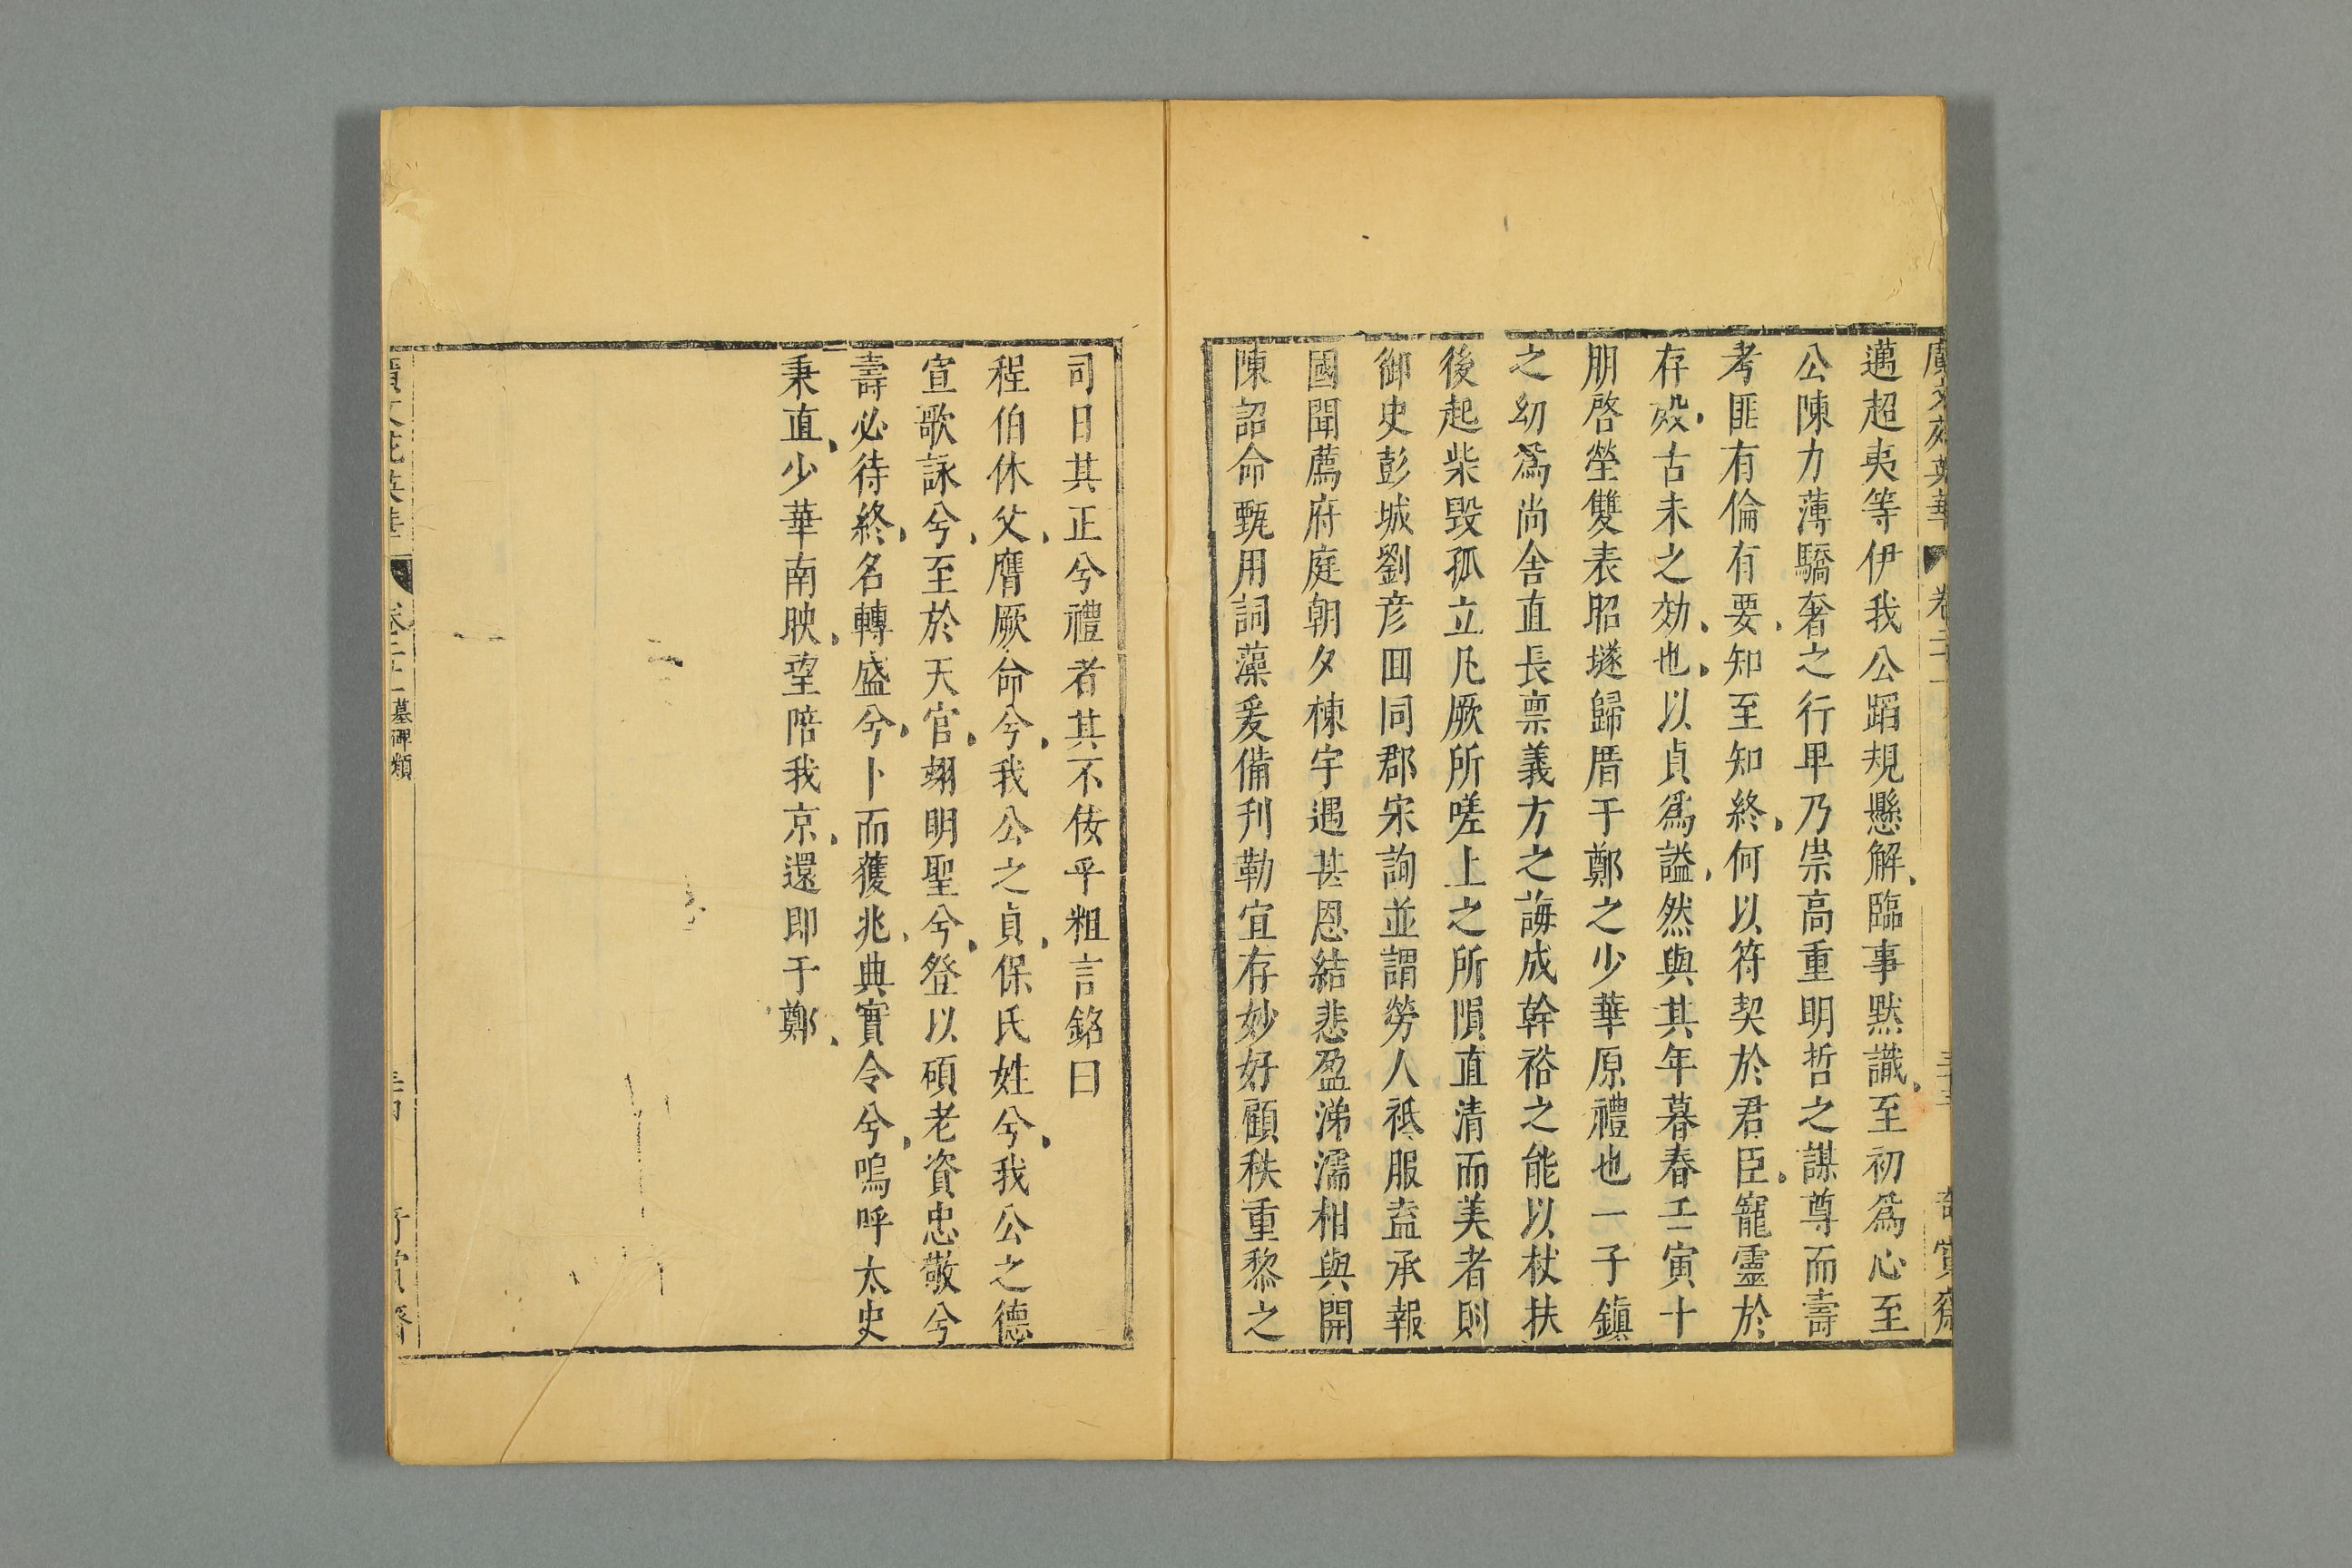 邁超夷等伊我公蹈規懸解臨事黙識至初爲心至
公陳力薄驕奢之行甲乃崇高重明哲之謀尊而壽
考匪有倫有要知至知終何以符契於君臣寵靈於
存歿古未之効也以貞爲謚然與其年暮春壬寅十
朋啓塋雙表昭墜歸厝于鄭之少華原禮也一子鎭
之幼爲尚舍直長禀義方之誨成幹裕之能以杖扶
後起柴毁孤立凡厥所嗟上之所隕直清而美者則
御史彭城劉彦囬同郡宋詢並謂勞人祗服盍承報
國聞薦府庭朝夕棟宇遇甚恩結悲盈涕濡相與開
陳詔命甄用詞藻爰備刋勒宜存妙好顧秩重黎之
司曰其正兮禮者其不佞乎粗言銘曰
程伯休父膺厥命兮我公之貞保氏姓兮我公之德
宣歌詠兮至於天官翊明聖兮登以碩老資忠敬兮
壽必待終名轉盛兮卜而獲兆典實令兮嗚呼太史
秉直少華南映望陪我京還即于鄭
廣文苑英華 墓碑類